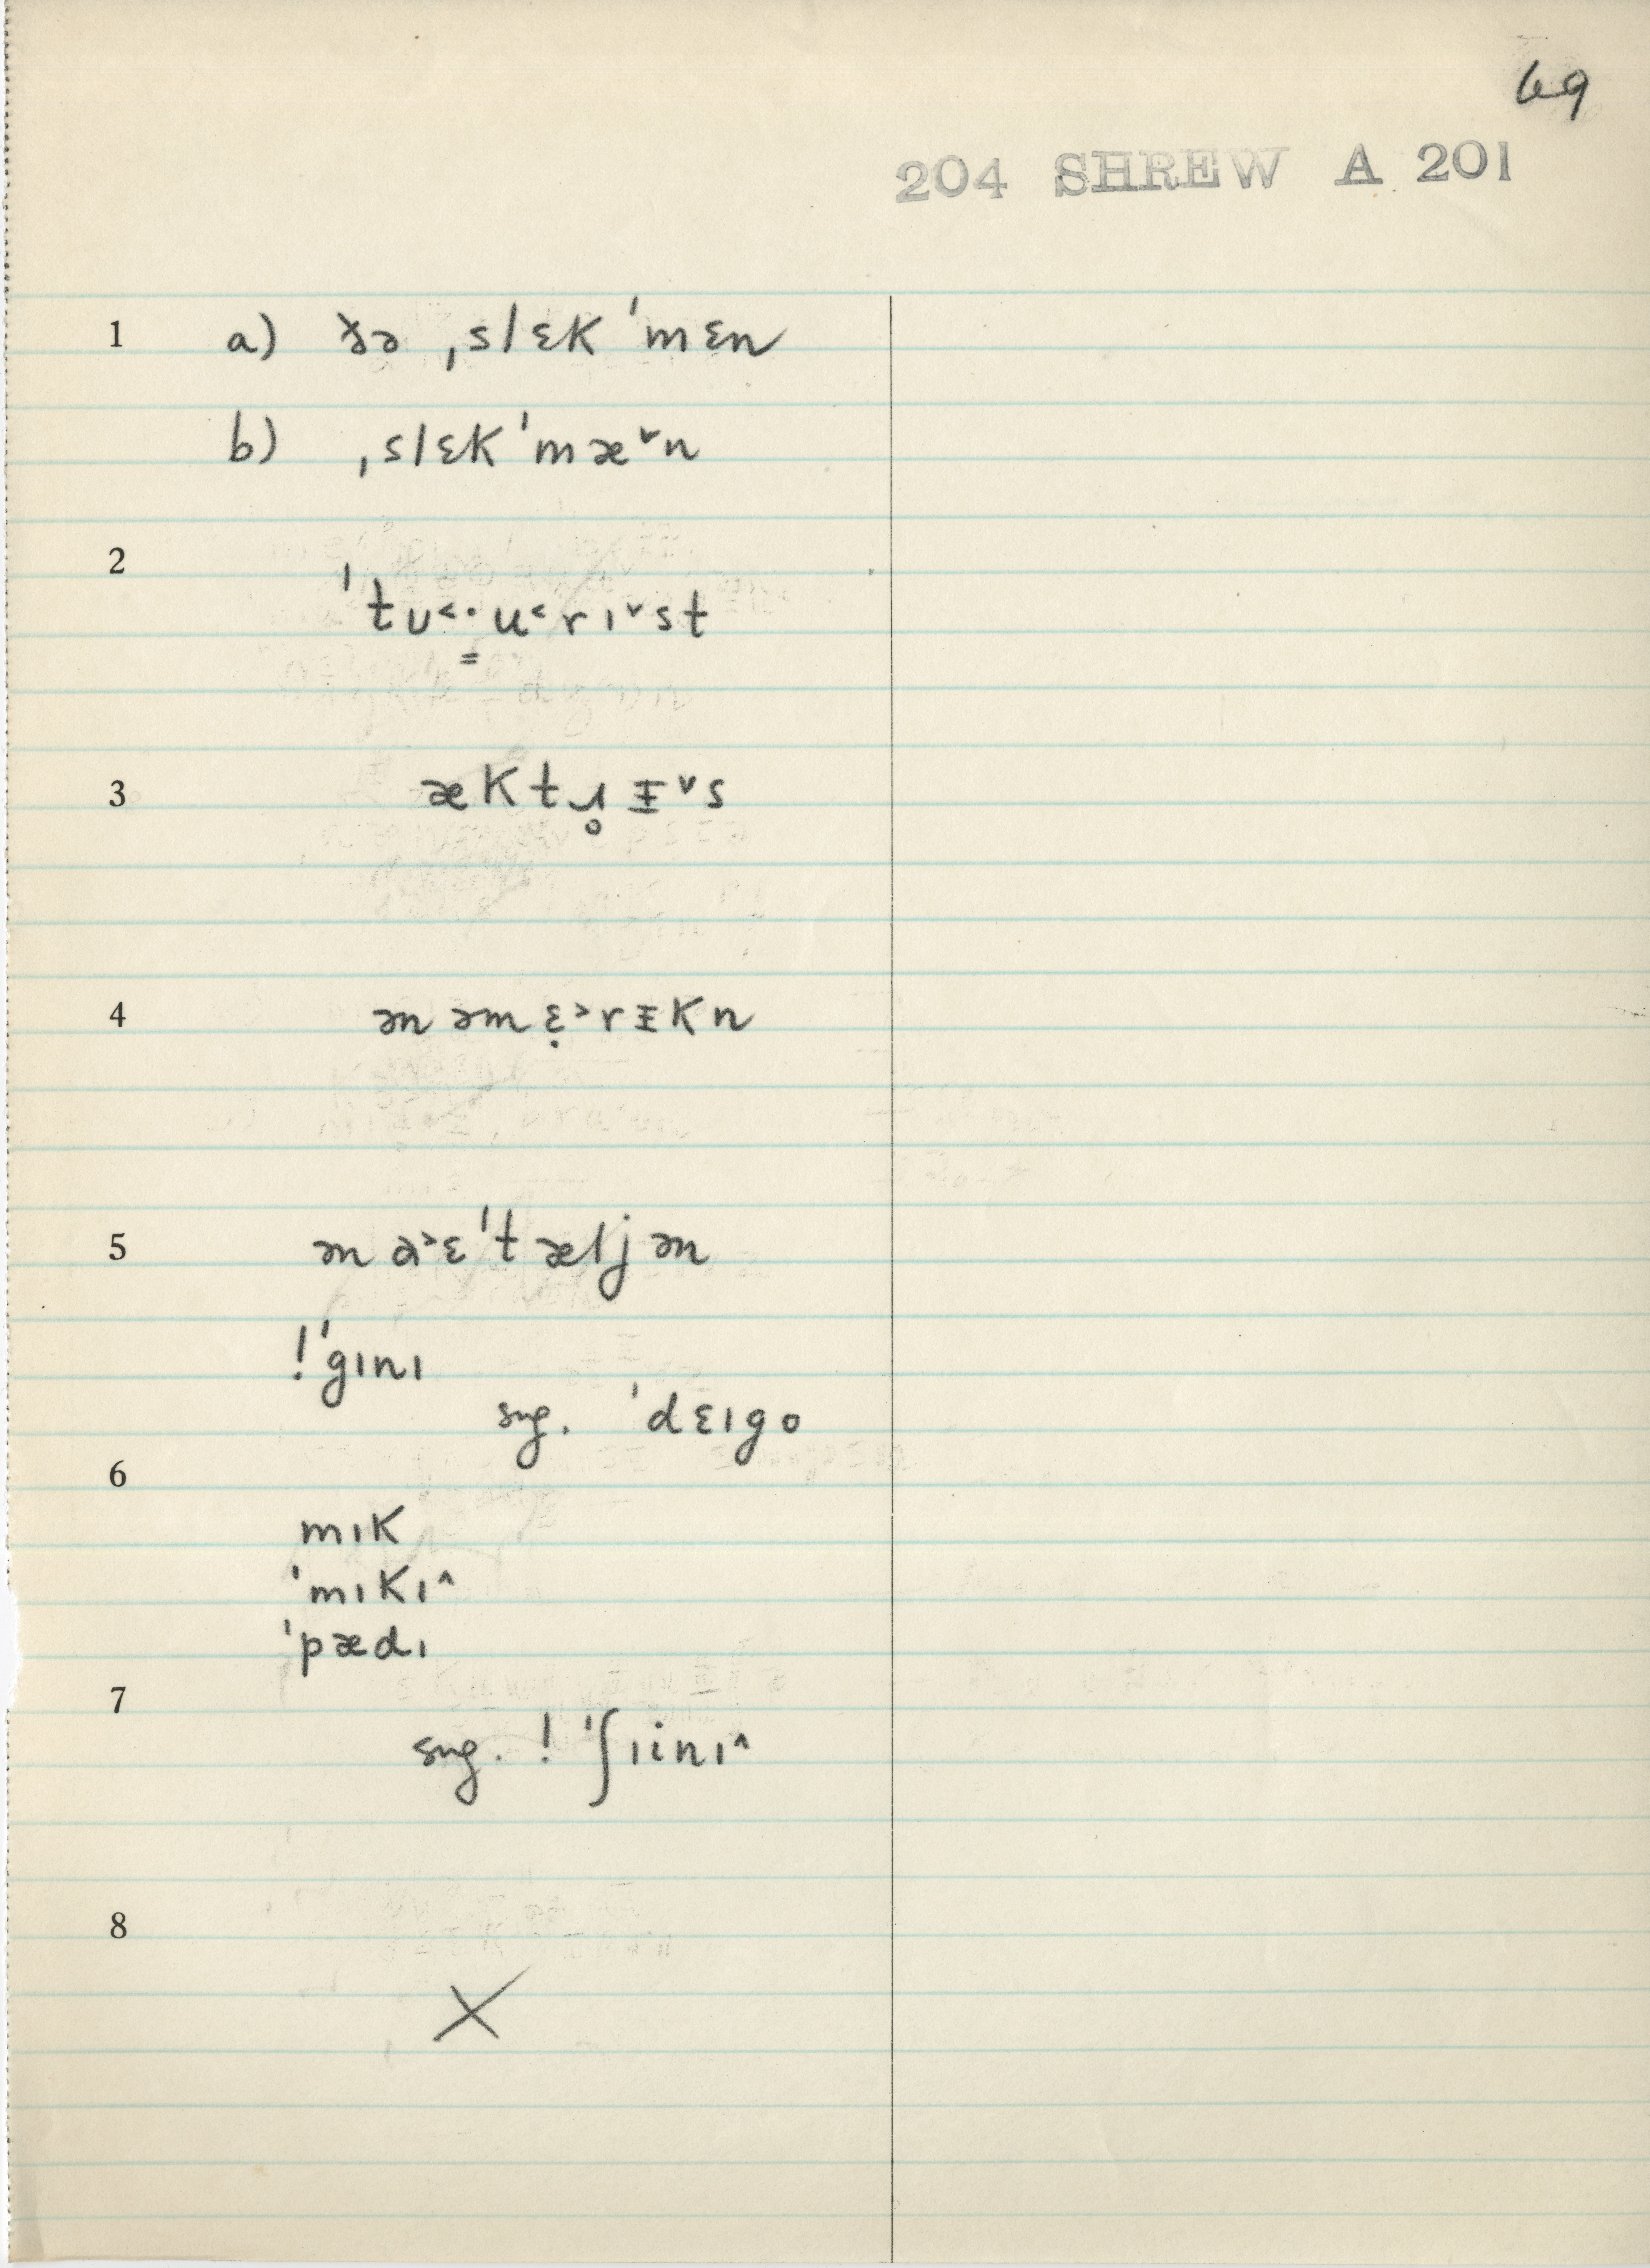 69
204 SHREW A 201
1 a) ðə ˌslɛK ˈmɛn
b) ˌslɛKˈmæ˅n
2
ˈtʊ˂·u˂rɪ˅st
3 æKtɹ̥ᵻ˅s
4 ən əmɛ̣˃rᵻKn
5 ən ɑ˃ɛˈtæljən
!ˈgɪnɪ
sug. ˈdɛɪgo
6
mɪK
ˈmɪKɪ˄
ˈpædɪ
7
sug. ! ˈʃɪinɪ˄
8
X